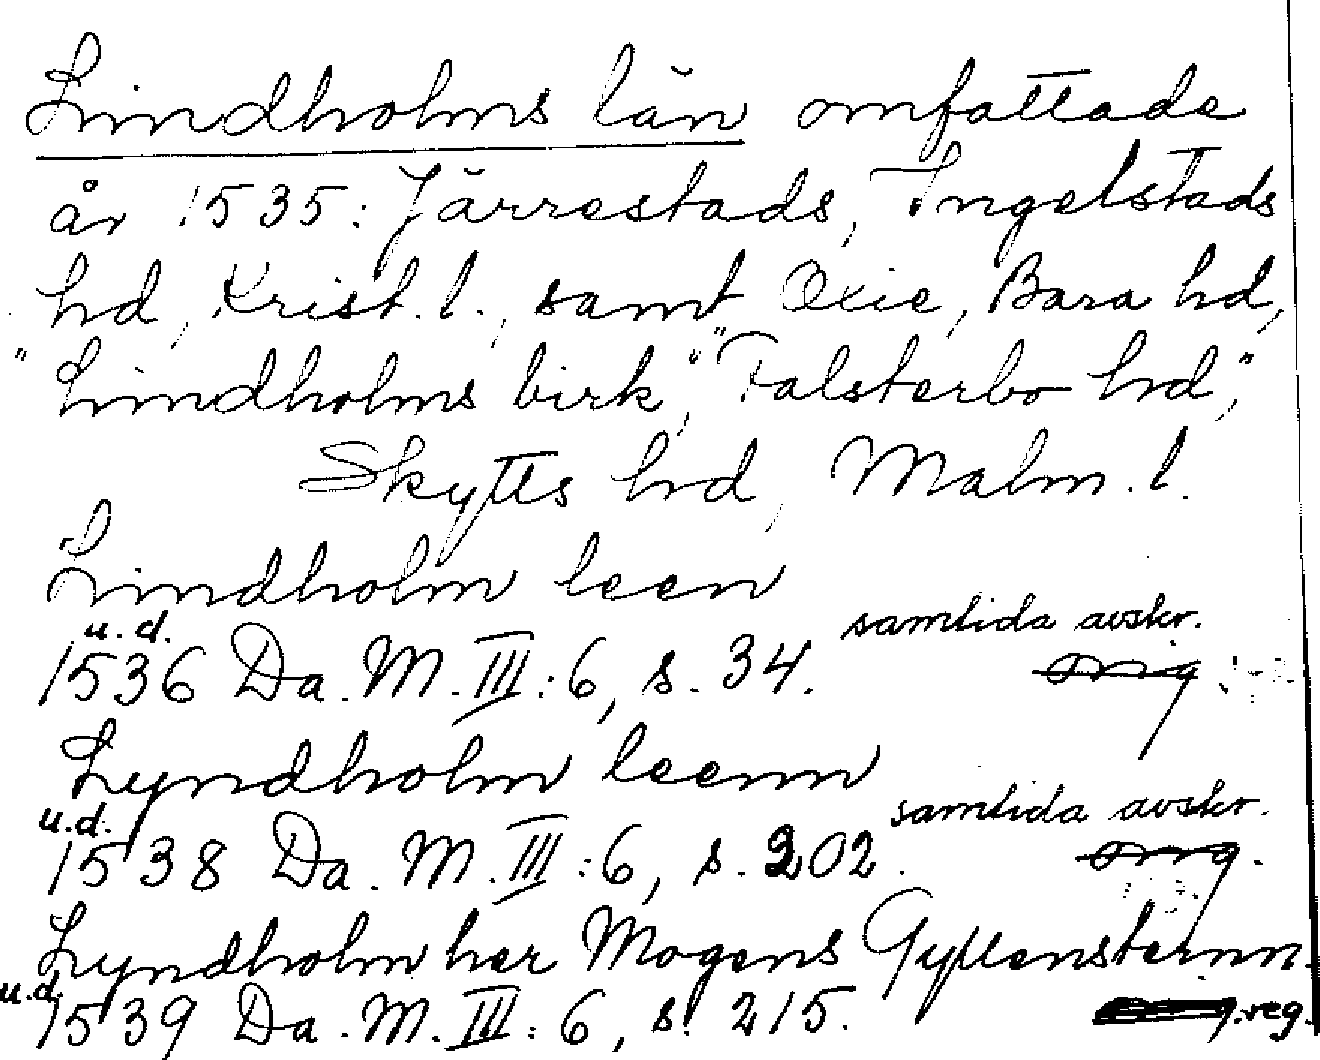 Lindholms län omfattade
år 1535: Järrestads, Ingelstads
hd, Krist. l., samt Oxie, Bara hd,
"Lindholms birk", "Falsterbo hd",
Skytts hd, Malm. l.
Lindholm leen
u. d. samtida avskr.
1536 Da. M. III: 6, s. 34. orig.
Lyndholm leenn
u.d. samtida avskr.
1538 Da. M. III: 6, s. 202. orig.
Lyndholm her Mogens Gyllensternn.
u.d.
1539 Da. M. III: 6, s. 215. reg.